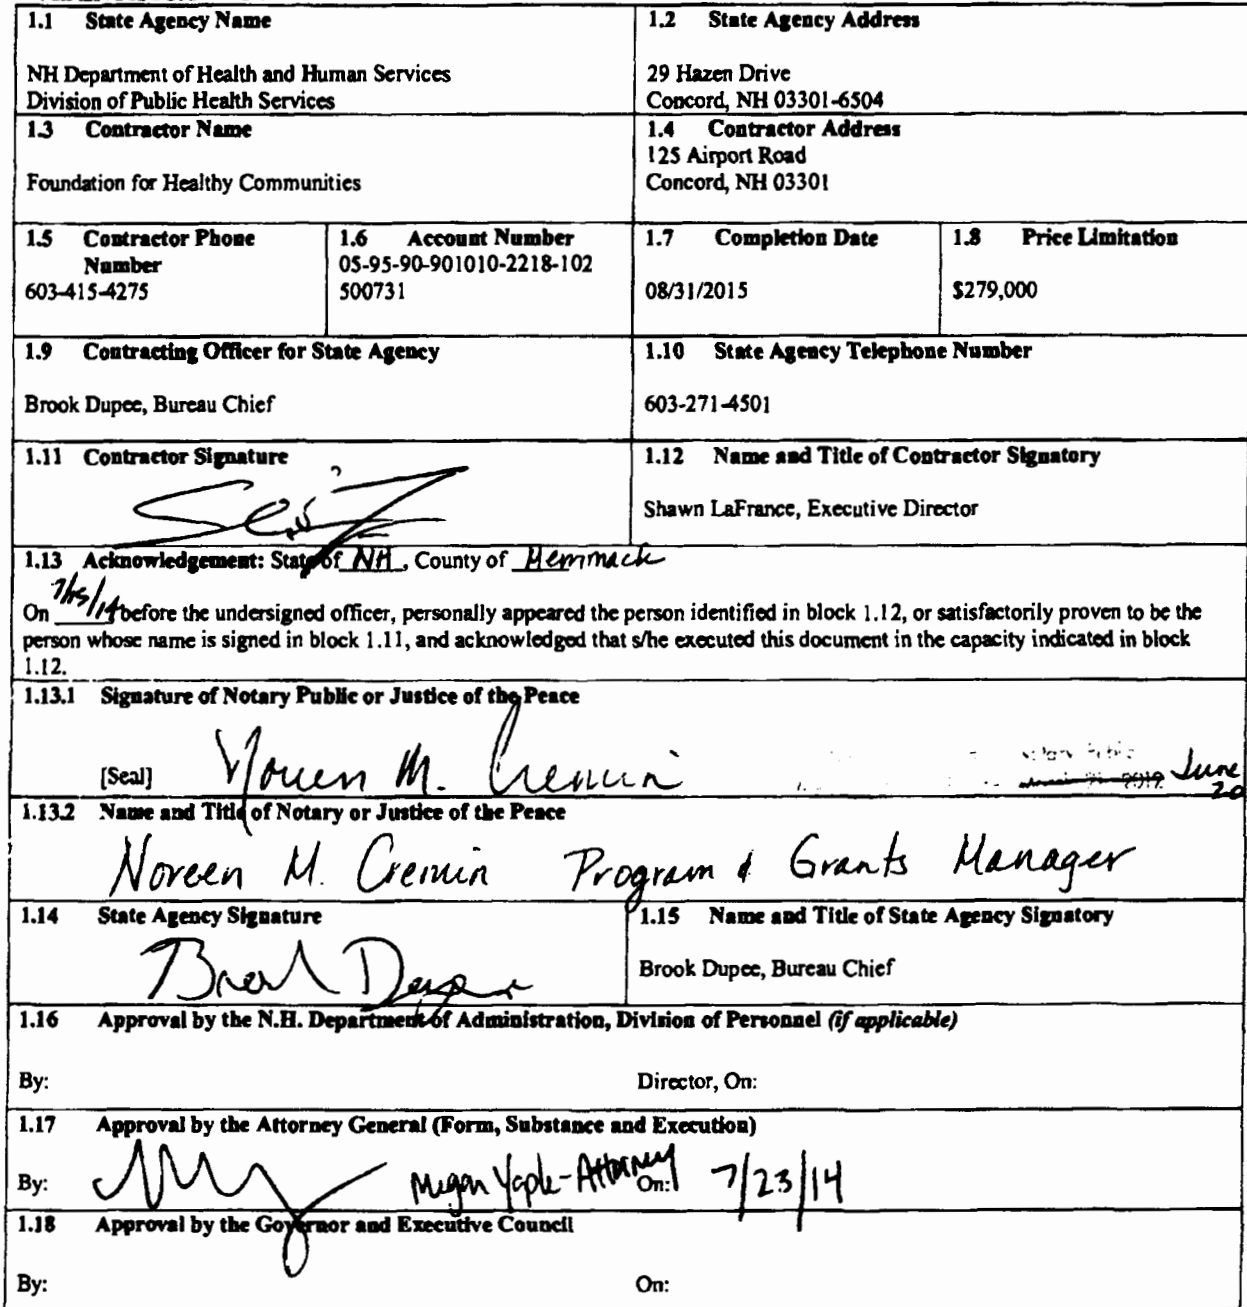 1.1 State Agency Name
NH Department of Health and Human Services
Division of Public Health Services
1.2 State Agency Address
29 Hazen Drive
Concord, NH 03301-6504
1.3 Contractor Name
Foundation for Healthy Communities
1.4 Contractor Address
125 Airport Road
Concord, NH 03301
1.5 Contractor Phone
Number
603-415-4275
1.6 Account Number
05-95-90-901010-2218-102
500731
1.7 Completion Date
08/31/2015
1.8 Price Limitation
$279,000
1.9 Contracting Officer for State Agency
Brook Dupee, Bureau Chief
1.10 State Agency Telephone Number
603-271-4501
1.11 Contractor Signature
1.12 Name and Title of Contractor Signatory
Shawn LaFrance, Executive Director
1.13 Acknowledgement: State of NH, County of Merrimack
On 7/15/14 before the undersigned officer, personally appeared the person identified in block 1.12, or satisfactorily proven to be the
person whose name is signed in block 1.11, and acknowledged that s/he executed this document in the capacity indicated in block
1.12.
1.13.1 Signature of Notary Public or Justice of the Peace
[Seal] Noreen M. Cremin
June
20
1.13.2 Name and Title of Notary or Justice of the Peace
Noreen M. Cremin Program & Grants Manager
1.14 State Agency Signature
Brook Dupee
1.15 Name and Title of State Agency Signatory
Brook Dupee, Bureau Chief
1.16 Approval by the N.H. Department of Administration, Division of Personnel (if applicable)
By: Director, On:
1.17 Approval by the Attorney General (Form, Substance and Execution)
By: Megan Yaple-Attorney On: 7/23/14
1.18 Approval by the Governor and Executive Council
By: On: